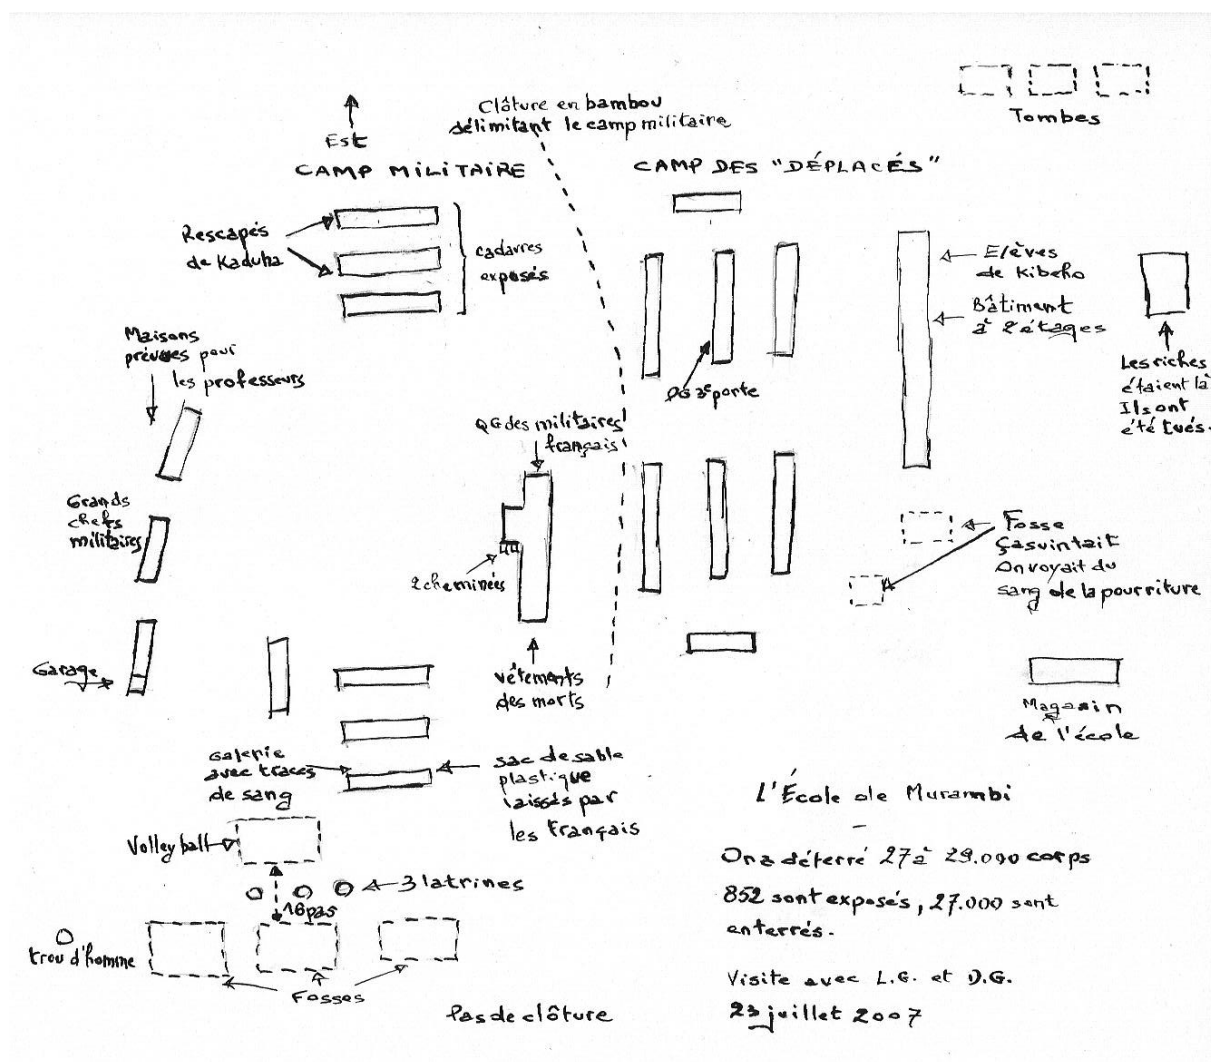 Tombes
Clôture en bambou
délimitant le camp militaire
Est
CAMP MILITAIRE
CAMP DES "DÉPLACÉS"
Rescapés
de Kaduha
cadavres
exposés
Elèves
de Kibeho
Bâtiment
à 2 étages
Les riches
étaient là
Ils ont
été tués.
Maisons
prévues pour
les professeurs
QG des militaires
français
Grands
chefs
militaires
2 cheminées
Fosse
ça suintait
On voyait du
sang de la pourriture
Garage
vêtements
des morts
Magasin
de l'école
Galerie
avec traces
de sang
sac de sable
plastique
laissés par
les Français
L'École de Murambi
Volley ball
3 latrines
16 pas
trou d'homme
Fosses
Pas de clôture
On a déterré 27 à 29.000 corps
852 sont exposés, 27.000 sont
enterrés.
Visite avec L.G. et D.G.
23 juillet 2007